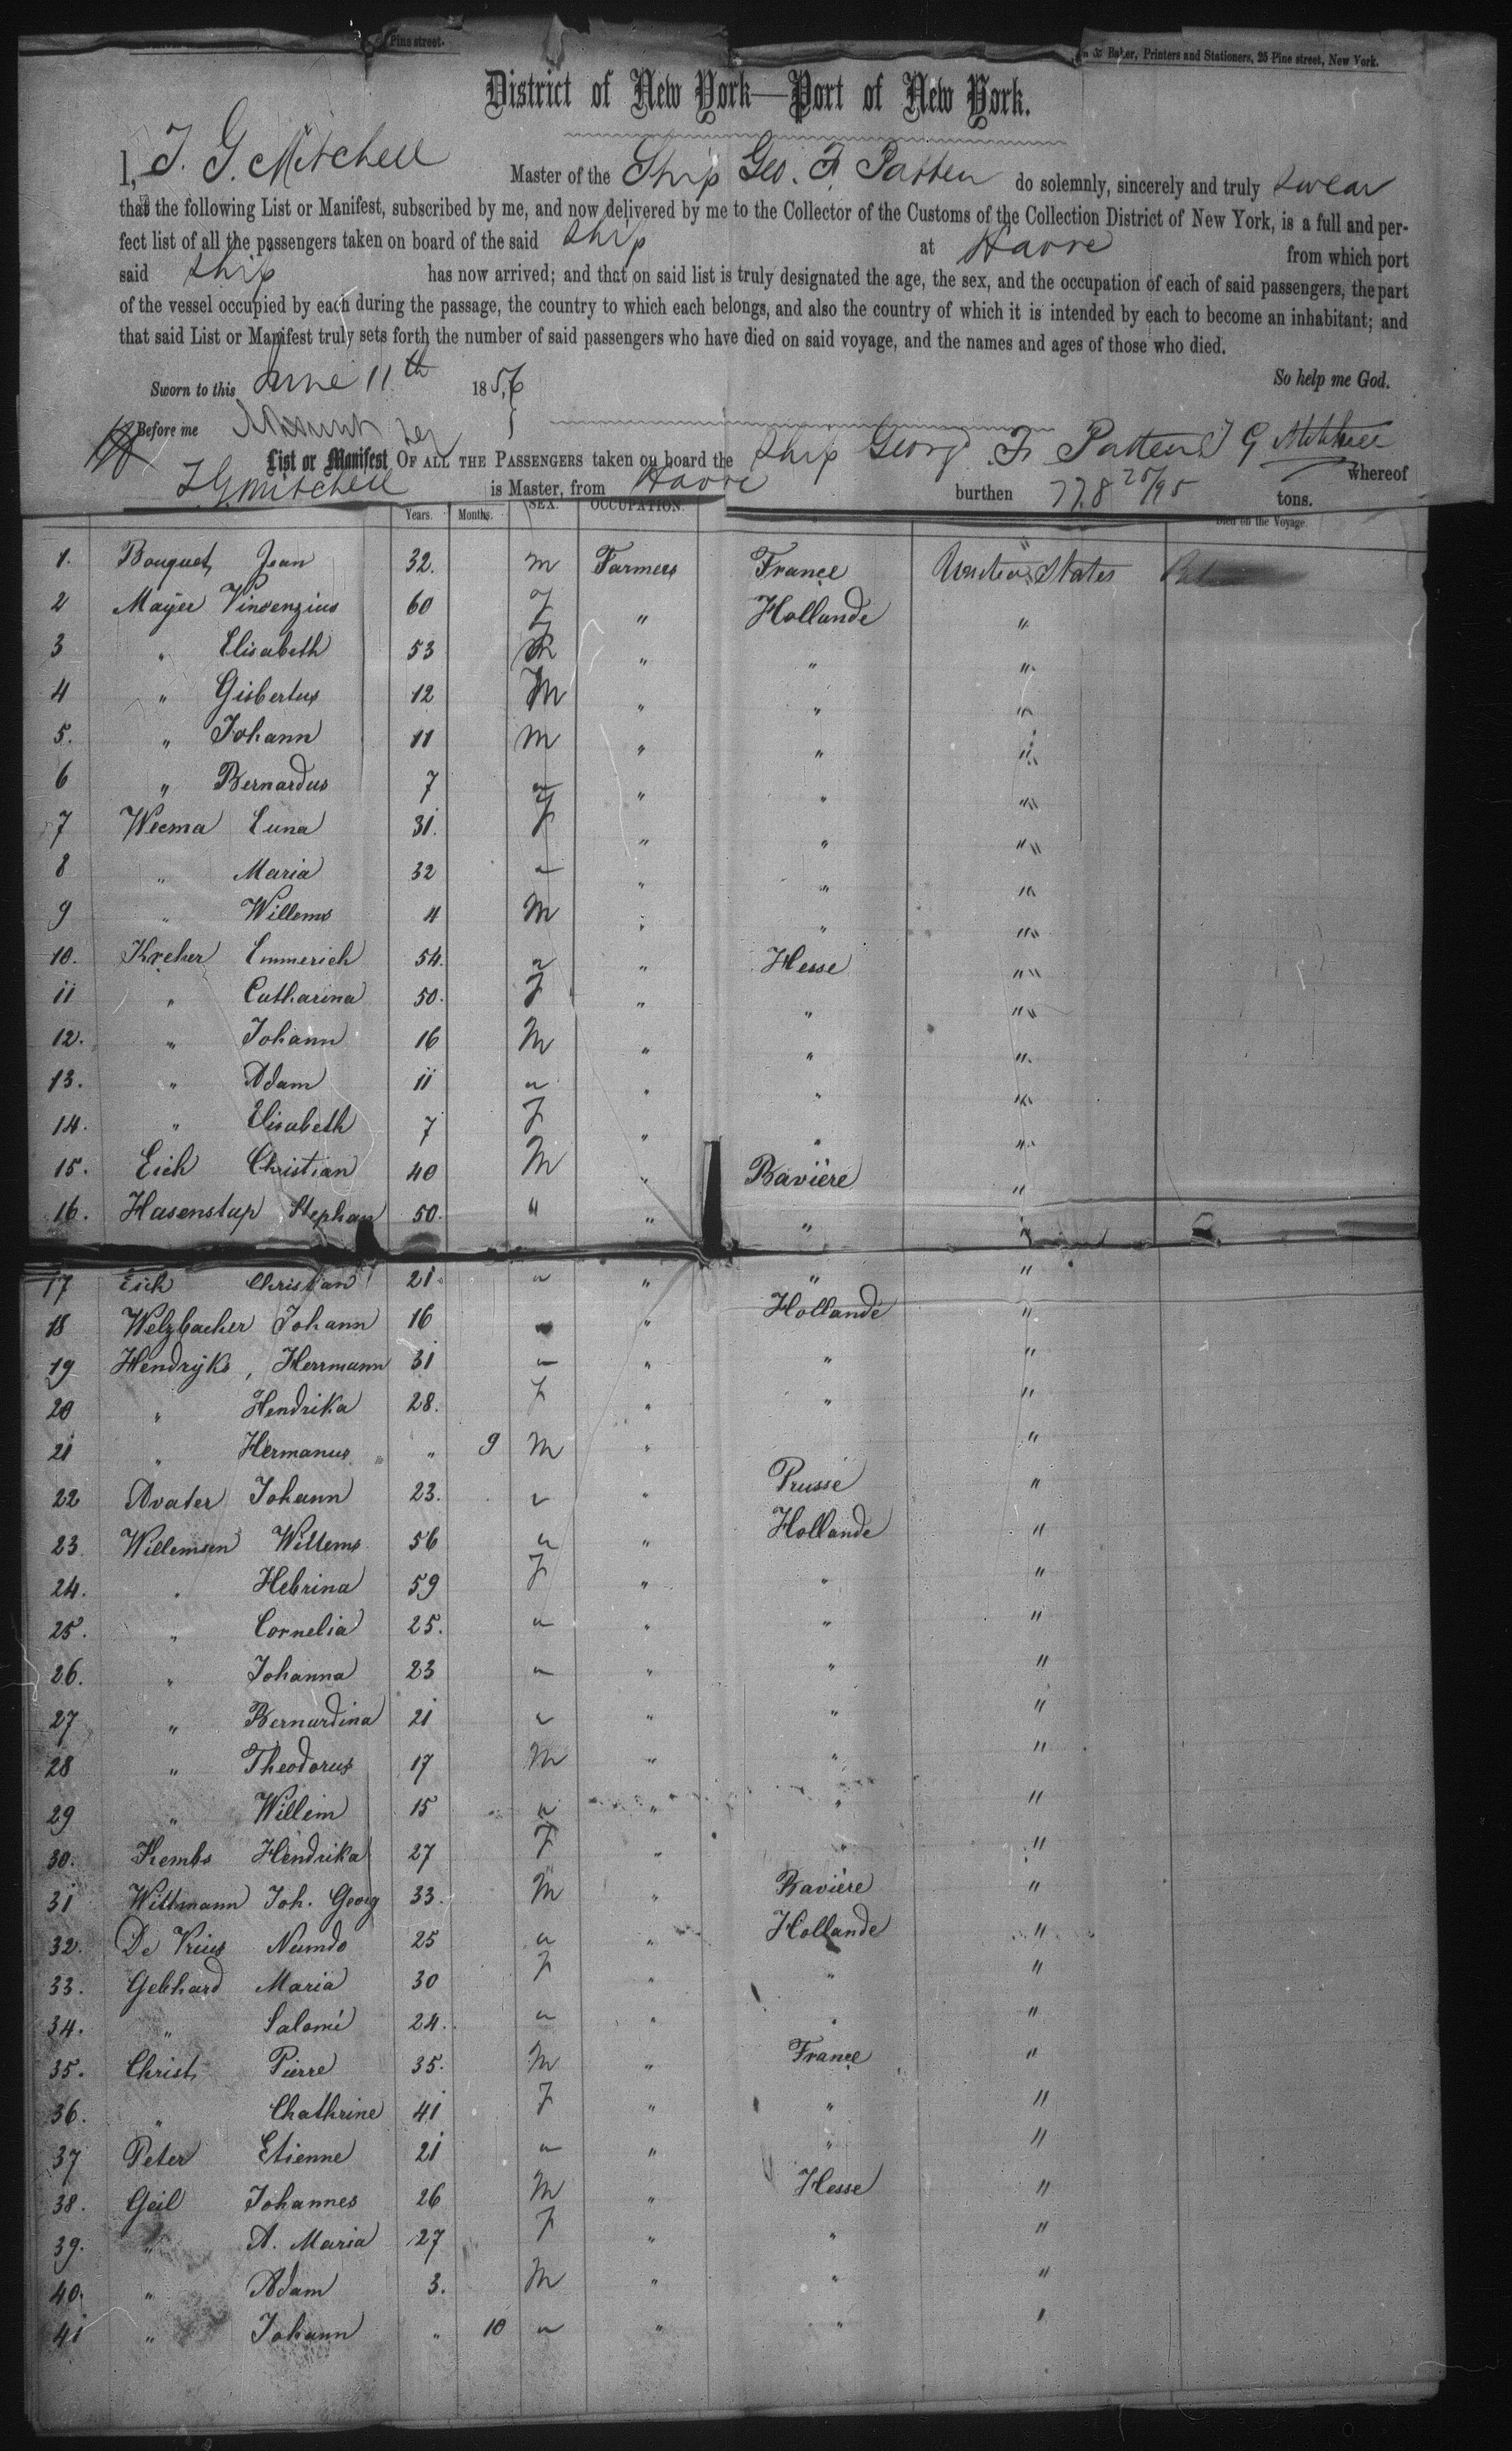 Pine street.
& Baker, Printers and Stationers, 25 Pine street, New York.
District of New York—Port of New York.
I, J. G. Mitchell Master of the Ship Geo. F. Patten do solemnly, sincerely and truly swear
that the following List or Manifest, subscribed by me, and now delivered by me to the Collector of the Customs of the Collection District of New York, is a full and per-
fect list of all the passengers taken on board of the said Ship at Havre from which port
said Ship has now arrived; and that on said list is truly designated the age, the sex, and the occupation of each of said passengers, the part
of the vessel occupied by each during the passage, the country to which each belongs, and also the country of which it is intended by each to become an inhabitant; and
that said List or Manifest truly sets forth the number of said passengers who have died on said voyage, and the names and ages of those who died.
So help me God.
Sworn to this June 11th 1856
Before me J G Mitchell
List or Manifest OF ALL THE PASSENGERS taken on board the Ship Georg F. Patten whereof
J G Mitchell is Master, from Havre burthen 778 25/95 tons.
Years. Months. SEX. OCCUPATION. Died on the Voyage.
1. Bouquet, Jean 32. M Farmers France United States
2 Mayer Vinsenzius 60 " Hollande "
3 " Elisabeth 53 " " "
4 " Gisbertus 12 M " " "
5. " Johann 11 M " " "
6 " Bernardus 7 " " " "
7 Wecma Euna 31. F " " "
8 " Maria 32 " " " "
9 " Willems 4 M " " "
10. Kreher Emmerich 54. " " Hesse "
11 " Catharina 50. F " " "
12. " Johann 16 M " " "
13. " Adam 11 " " " "
14. " Elisabeth 7 F " " "
15. Eich Christian 40 M " Bavière "
16. Hasenstap Stephan 50. " " " "
17 Eich Christian 21. " " " "
18 Welzbacher Johann 16 " Hollande "
19 Hendryks, Herrmann 31 " " " "
20 " Hendrika 28. F " " "
21 " Hermanus " 9 M " "
22 Avater Johann 23. " " Prusse "
23 Willemsen Willems 56 " " Hollande "
24. " Hebrina 59 F " " "
25. " Cornelia 25. " " " "
26. " Johanna 23 " " " "
27 " Bernardina 21 " " " "
28 " Theodorus 17 M " " "
29 " Willem 15 " " " "
30. Kembs Hendrika 27 F " " "
31 Wittmann Joh. Georg 33. M " Bavière "
32. De Vrius Numdo 25 " " Hollande "
33. Gebhard Maria 30 F " " "
34. " Salomé 24. " " " "
35. Christ, Pierre 35. M " France "
36. " Chathrine 41 F " " "
37 Peter Etienne 21 " " " "
38. Geil Johannes 26 M " Hesse "
39. " A. Maria 27 F " " "
40. " Adam 3. M " " "
41 " Johann " 10 " " " "